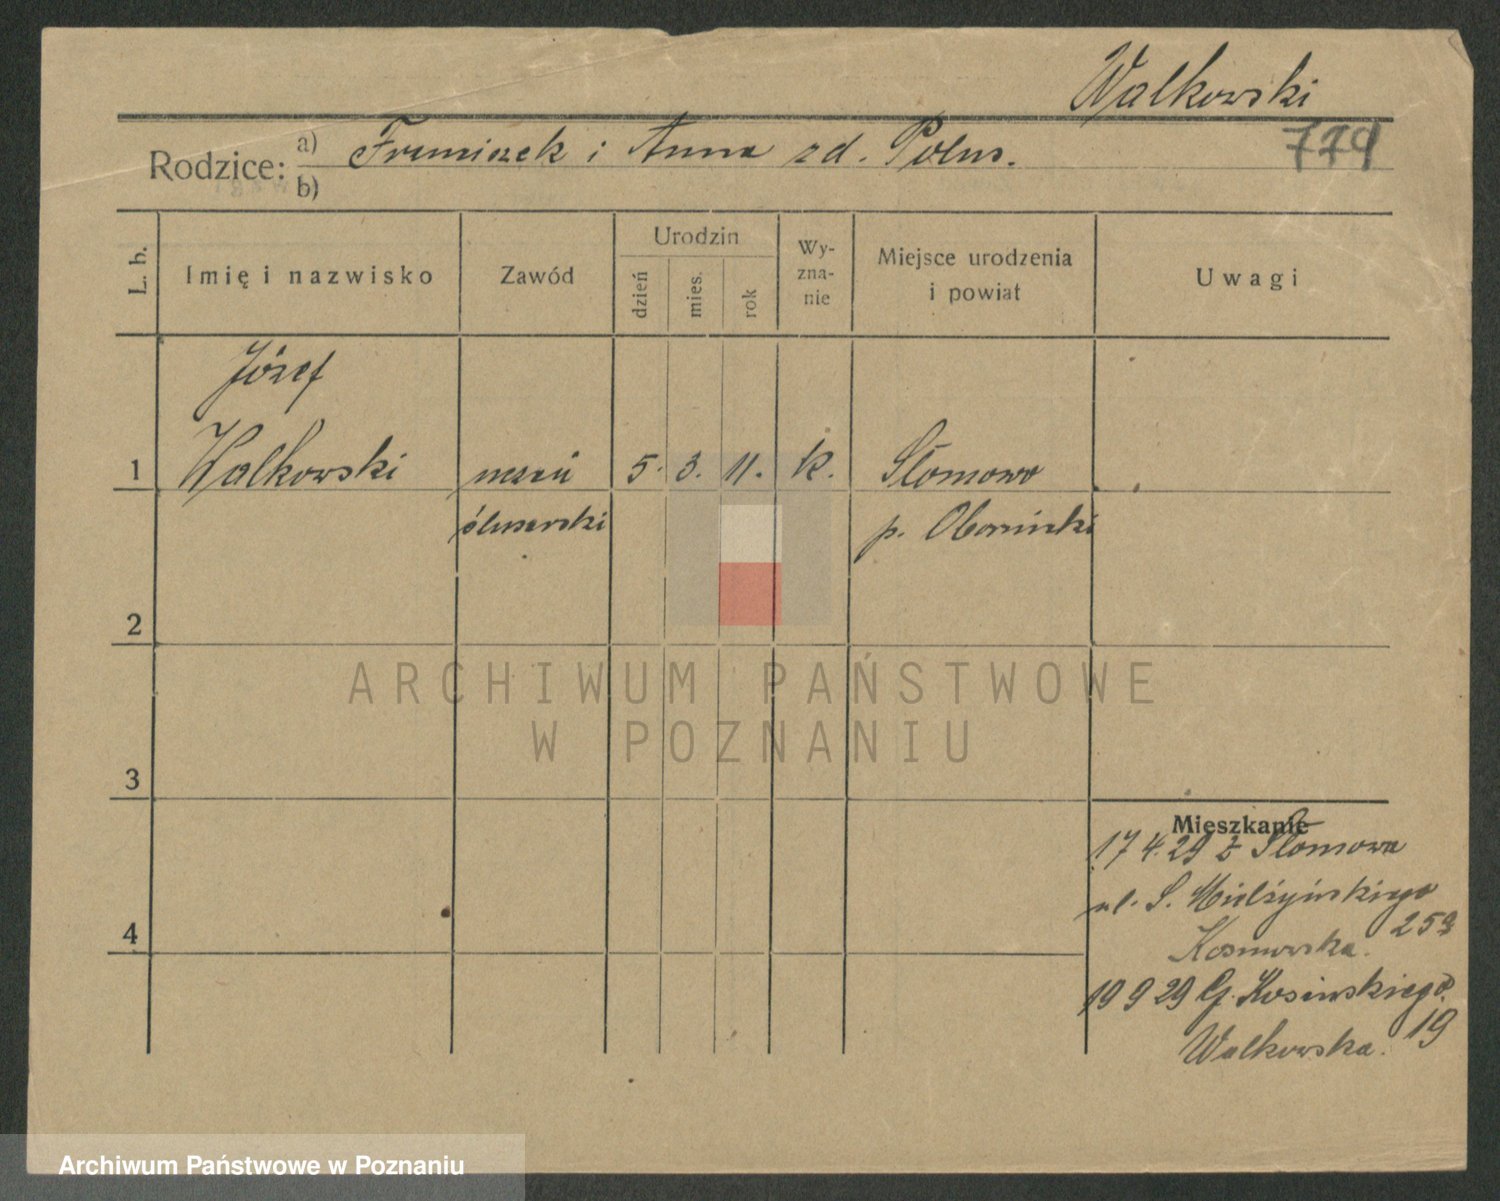 Walkowski
779
Rodzice: a) Franciszek i Anna zd. Polus.
b)
L. b.
Imię i nazwisko
Zawód
Urodzin
dzień
mies.
rok
Wy-
zna-
nie
Miejsce urodzenia
i powiat
Uwagi
Józef
1 Walkowski uczeń 5. 3. 11. k. Słomowo
ślusarski p. Obornicki
2
ARCHIWUM PAŃSTWOWE
W POZNANIU
3
Mieszkanie
17 4. 29 z Słomowa
ul. S. Mielżyńskiego
25
4
19 9 29 G. Kosińskiego
19
Walkowska.
Archiwum Państwowe w Poznaniu